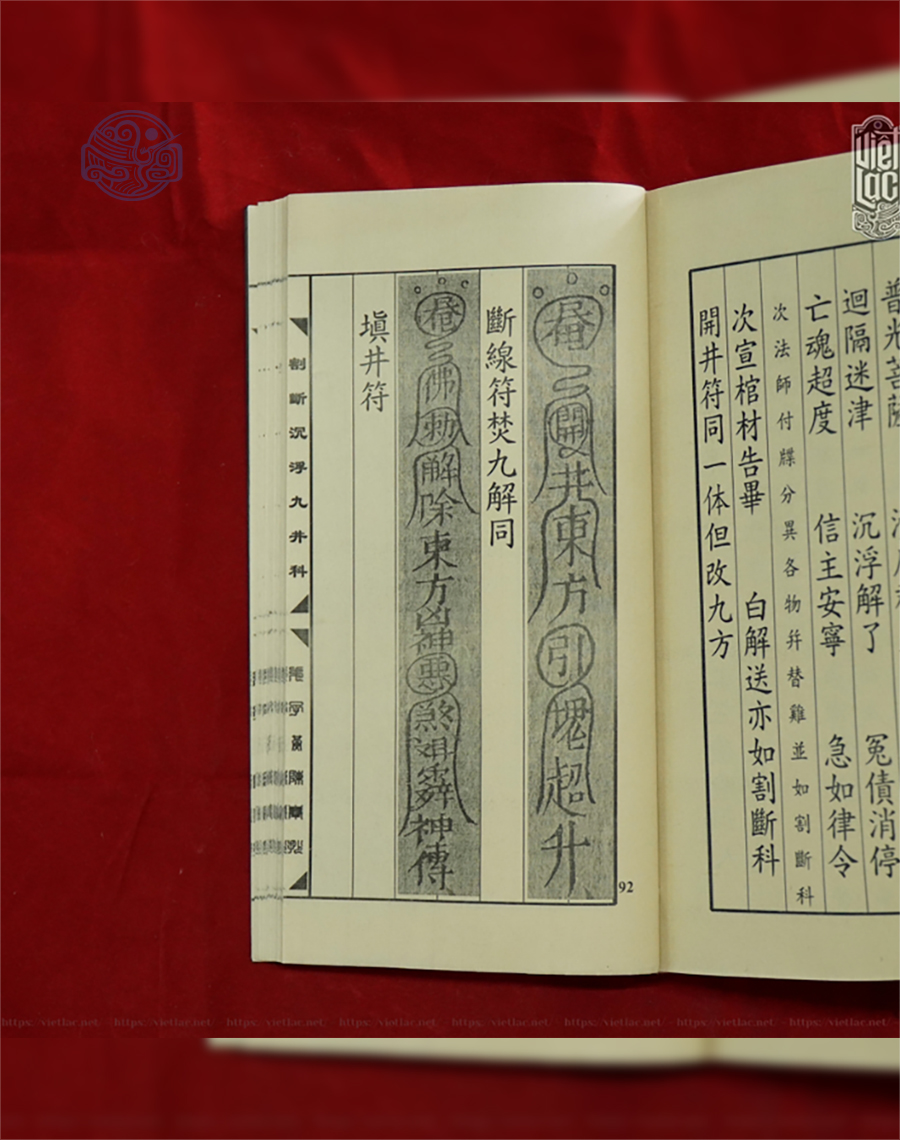 Việt Lạc
普光菩薩
迴隔迷津 沉浮解了 冤債消停
亡魂超度 信主安寧 急如律令
次法師付牒分異各物并替雞並如割斷科
次宣棺材告畢 白解送亦如割斷科
開井符同一体但改九方
開井東方引魂超升
斷線符焚九解同
佛勅解除東方凶神惡煞
神傳
塡井符
割斷沉浮九井科
92
https://vietlac.net/ - https://vietlac.net/ - https://vietlac.net/ - https://vietlac.net/ - https://vietlac.net/ - https://vietlac.net/ - https://vietlac.net/ - https://vietlac.net/